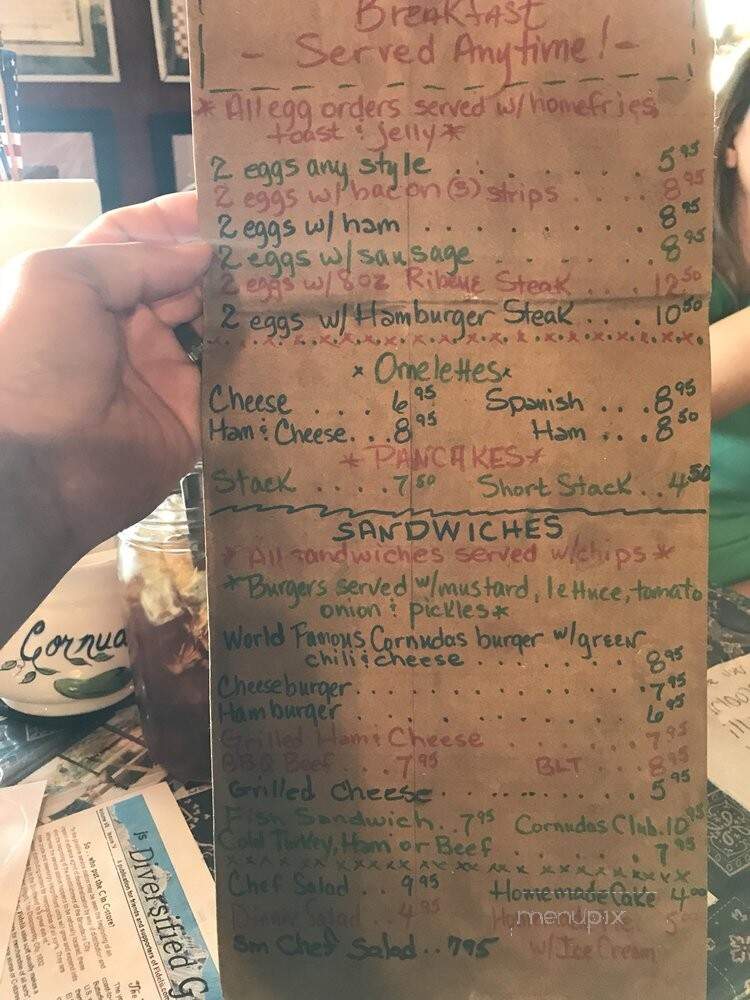 Breakfast
- Served Anytime! -
* All egg orders served w/homefries,
toast & jelly *
2 eggs any style . . . . . . . 5 95
2 eggs w/ bacon (3) strips . . . . 8 95
2 eggs w/ ham . . . . . . . . 8 95
2 eggs w/ sausage . . . . . . 8 95
2 eggs w/ 8oz Ribeye Steak . . . 12 50
2 eggs w/ Hamburger Steak . . . 10 50
* Omelettes *
Cheese . . . . 6 95 Spanish . . . 8 95
Ham & Cheese . . . 8 95 Ham . . . 8 50
* PANCAKES *
Stack . . . . . 7 50 Short Stack . . 4 50
SANDWICHES
* All sandwiches served w/chips *
* Burgers served w/mustard, lettuce, tomato
onion & pickles *
World Famous Cornudas burger w/green
chili & cheese . . . . . . . 8 95
Cheeseburger . . . . . . . . . . 7 95
Hamburger . . . . . . . . . . 6 95
Grilled Ham & Cheese . . . . . . 7 95
BBQ Beef . . . 7 95 BLT . . . 8 95
Grilled Cheese . . . . . . . . . 5 95
Fish Sandwich . . 7 95 Cornudas Club . 10 95
Cold Turkey, Ham or Beef . . . . . . 7 95
Chef Salad . . 9 95 Homemade Cake 4 00
Dinner Salad . . 4 95 5 00
Sm Chef Salad . . 7 95 w/ Ice Cream
menupix
Cornuda
is Diversified G
A publication for friends and supporters of Fidelis
So . . . who put the C in C-store?
The